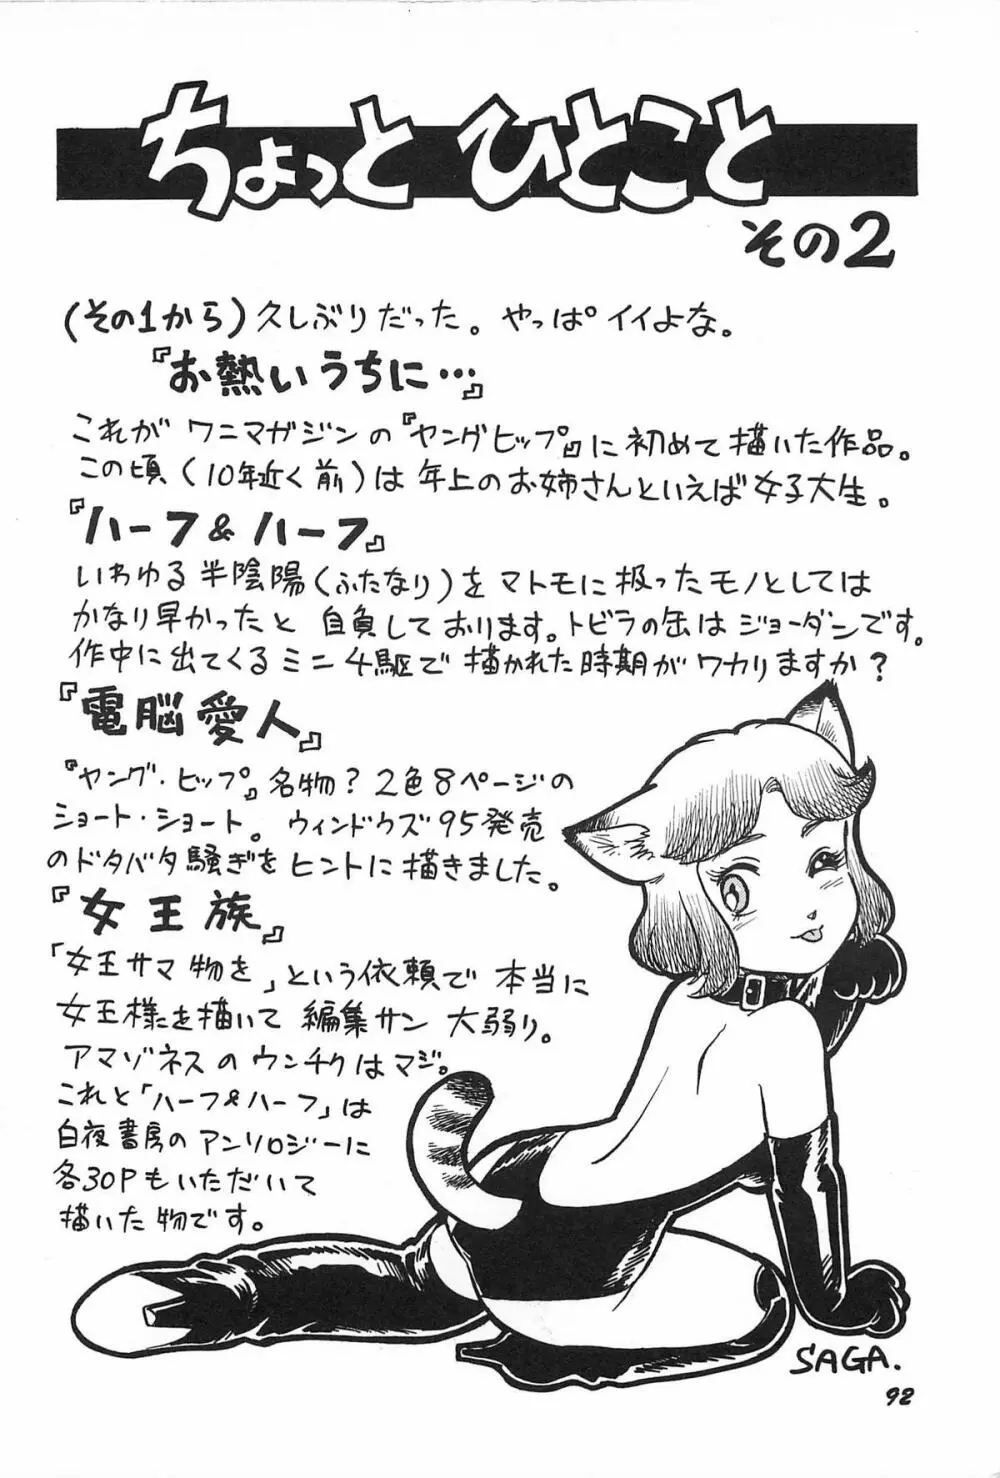 ちょっと ひとこと
その2
(その1から)久しぶりだった。やっぱ イイよな。
『お熱いうちに…』
これが ワニマガジンの『ヤングヒップ』に初めて描いた作品。
この頃(10年近く前)は年上のお姉さんといえば女子大生。
『ハーフ&ハーフ』
いわゆる半陰陽(ふたなり)をマトモに扱ったモノとしては
かなり早かったと自負しております。トビラの缶はジョーダンです。
作中に出てくるミニ4駆で描かれた時期がワカりますか?
『電脳愛人』
『ヤング・ヒップ』名物?2色8ページの
ショート・ショート。ウィンドウズ95発売
のドタバタ騒ぎをヒントに描きました。
『女王族』
「女王サマ物を」という依頼で本当に
女王様を描いて編集サン大弱り。
アマゾネスのウンチクはマジ。
これと「ハーフ&ハーフ」は
白夜書房のアンソロジーに
各30Pもいただいて
描いた物です。
SAGA.
92